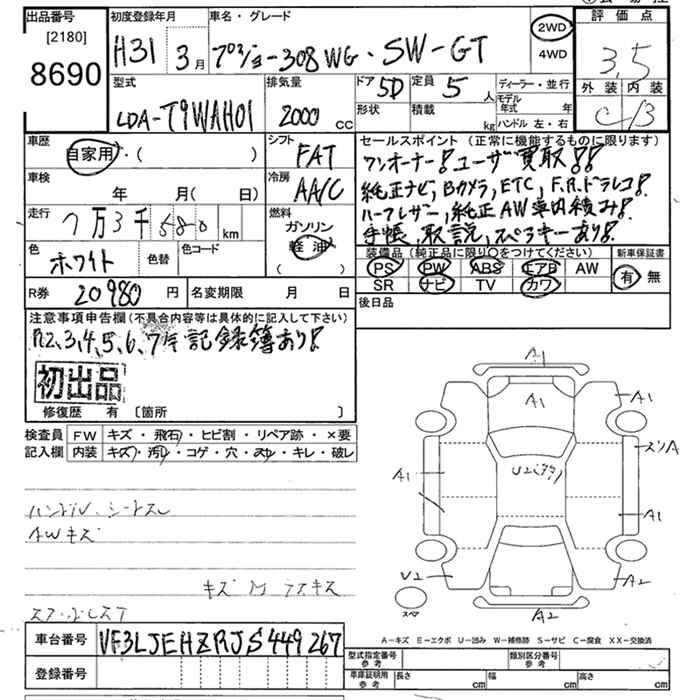 出品番号
[2180]
8690
初度登録年月
H31 3月
車名・グレード
プロジョー-308WG・SW-GT
2WD
4WD
評価点
3,5
外装 内装
C B
型式
LDA-T9WAH01
排気量
2000 cc
ドア 5D
定員 5 人
形状
積載 kg
ディーラー・並行
モデル年式 年
ハンドル 左・右
車歴
自家用・( )
シフト
FAT
車検
年 月( 日)
冷房
AA/C
走行
7万3千580km
燃料
ガソリン
軽油
( )
色
ホワイト
色替
色コード
R券 20980円
名変期限 月 日
セールスポイント (正常に機能するものに限ります)
ワンオーナー!ユーザー買取!!
純正ナビ,Bカメラ,ETC,F.R.ドラレコ!
ハーフレザー,純正AW車内積み!
手帳,取説,スペアキーあり!
装備品 (純正品に限り○をつけてください)
PS PW ABS エアB AW
SR ナビ TV カワ
新車保証書
有 無
後日品
注意事項申告欄(不具合内容等は具体的に記入して下さい)
R2,3,4,5,6,7年記録簿あり!
初出品
修復歴 有 〔箇所 〕
検査員記入欄
FW キズ・飛石・ヒビ割・リペア跡・×要
内装 キズ・汚れ・コゲ・穴・スレ・キレ・破レ
ハンドル シートスレ
AWキズ
A1
A1
A1
A1
A1
A2
A2
U2
スペア
A-キズ E-エクボ U-凹み W-補修跡 S-サビ C-腐食 XX-交換済
車台番号 VF3LJEHZRJS449267
登録番号
型式指定番号 参考
類別区分番号 参考
車庫証明用 参考
長さ cm
幅 cm
高さ cm